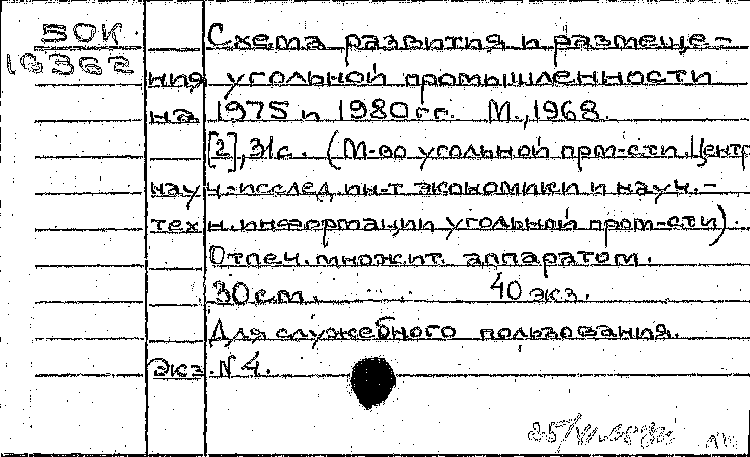 50К
16362
Схема развития и размеще-
ния угольной промышленности
на 1975 и 1980 гг. М., 1968.
[2], 31с. (М-во угольной пром-сти. Центр.
науч.-исслед. ин-т экономики и науч.-
техн. информации угольной пром-сти).
Отпеч. множит. аппаратом.
30 см. 40 экз.
Для служебного пользования.
Экз. № 4.